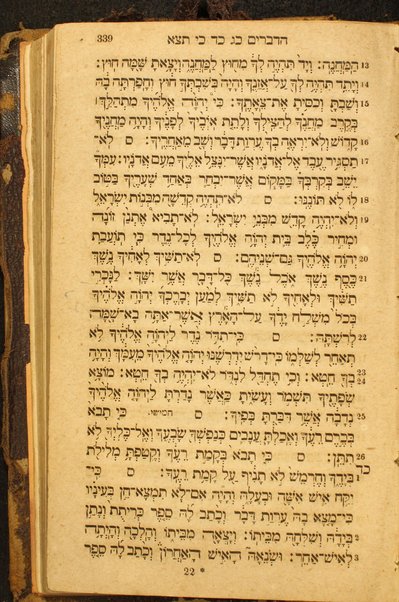 339 הדברים כג כד כי תצא
13 הַמַּחֲנֶה׃ וְיָד תִּהְיֶה לְךָ מִחוּץ לַמַּחֲנֶה וְיָצָאתָ שָּׁמָּה חוּץ׃
14 וְיָתֵד תִּהְיֶה לְךָ עַל־אֲזֵנֶךָ וְהָיָה בְּשִׁבְתְּךָ חוּץ וְחָפַרְתָּה בָהּ
15 וְשַׁבְתָּ וְכִסִּיתָ אֶת־צֵאָתֶךָ׃ כִּי יְהוָֹה אֱלֹהֶיךָ מִתְהַלֵּךְ
בְּקֶרֶב מַחֲנֶךָ לְהַצִּילְךָ וְלָתֵת אֹיְבֶיךָ לְפָנֶיךָ וְהָיָה מַחֲנֶיךָ
16 קָדוֹשׁ וְלֹא־יִרְאֶה בְךָ עֶרְוַת דָּבָר וְשָׁב מֵאַחֲרֶיךָ׃ ס לֹא־
17 תַסְגִּיר עֶבֶד אֶל־אֲדֹנָיו אֲשֶׁר־יִנָּצֵל אֵלֶיךָ מֵעִם אֲדֹנָיו׃ עִמְּךָ
יֵשֵׁב בְּקִרְבְּךָ בַּמָּקוֹם אֲשֶׁר־יִבְחַר בְּאַחַד שְׁעָרֶיךָ בַּטּוֹב
18 לוֹ לֹא תּוֹנֶנּוּ׃ ס לֹא־תִהְיֶה קְדֵשָׁה מִבְּנוֹת יִשְׂרָאֵל
19 וְלֹא־יִהְיֶה קָדֵשׁ מִבְּנֵי יִשְׂרָאֵל׃ לֹא־תָבִיא אֶתְנַן זוֹנָה
וּמְחִיר כֶּלֶב בֵּית יְהוָֹה אֱלֹהֶיךָ לְכָל־נֶדֶר כִּי תוֹעֲבַת
20 יְהוָֹה אֱלֹהֶיךָ גַּם־שְׁנֵיהֶם׃ ס לֹא־תַשִּׁיךְ לְאָחִיךָ נֶשֶׁךְ
21 כֶּסֶף נֶשֶׁךְ אֹכֶל נֶשֶׁךְ כָּל־דָּבָר אֲשֶׁר יִשָּׁךְ׃ לַנָּכְרִי
תַשִּׁיךְ וּלְאָחִיךָ לֹא תַשִּׁיךְ לְמַעַן יְבָרֶכְךָ יְהוָֹה אֱלֹהֶיךָ
בְּכֹל מִשְׁלַח יָדֶךָ עַל־הָאָרֶץ אֲשֶׁר־אַתָּה בָא־שָׁמָּה
22 לְרִשְׁתָּהּ׃ ס כִּי־תִדֹּר נֶדֶר לַיהוָֹה אֱלֹהֶיךָ לֹא
תְאַחֵר לְשַׁלְּמוֹ כִּי־דָרֹשׁ יִדְרְשֶׁנּוּ יְהוָֹה אֱלֹהֶיךָ מֵעִמָּךְ וְהָיָה
23 24 בְךָ חֵטְא׃ וְכִי תֶחְדַּל לִנְדֹּר לֹא־יִהְיֶה בְךָ חֵטְא׃ מוֹצָא
שְׂפָתֶיךָ תִּשְׁמֹר וְעָשִׂיתָ כַּאֲשֶׁר נָדַרְתָּ לַיהוָֹה אֱלֹהֶיךָ
25 נְדָבָה אֲשֶׁר דִּבַּרְתָּ בְּפִיךָ׃ ס חמישי. כִּי תָבֹא
בְּכֶרֶם רֵעֶךָ וְאָכַלְתָּ עֲנָבִים כְּנַפְשְׁךָ שָׂבְעֶךָ וְאֶל־כֶּלְיְךָ לֹא
26 תִתֵּן׃ ס כִּי תָבֹא בְּקָמַת רֵעֶךָ וְקָטַפְתָּ מְלִילֹת
כד 1 בְּיָדֶךָ וְחֶרְמֵשׁ לֹא תָנִיף עַל קָמַת רֵעֶךָ׃ ס כִּי־
יִקַּח אִישׁ אִשָּׁה וּבְעָלָהּ וְהָיָה אִם־לֹא תִמְצָא־חֵן בְּעֵינָיו
כִּי־מָצָא בָהּ עֶרְוַת דָּבָר וְכָתַב לָהּ סֵפֶר כְּרִיתֻת וְנָתַן
2 בְּיָדָהּ וְשִׁלְּחָהּ מִבֵּיתוֹ׃ וְיָצְאָה מִבֵּיתוֹ וְהָלְכָה וְהָיְתָה
3 לְאִישׁ־אַחֵר׃ וּשְׂנֵאָהּ הָאִישׁ הָאַחֲרוֹן וְכָתַב לָהּ סֵפֶר
22 *